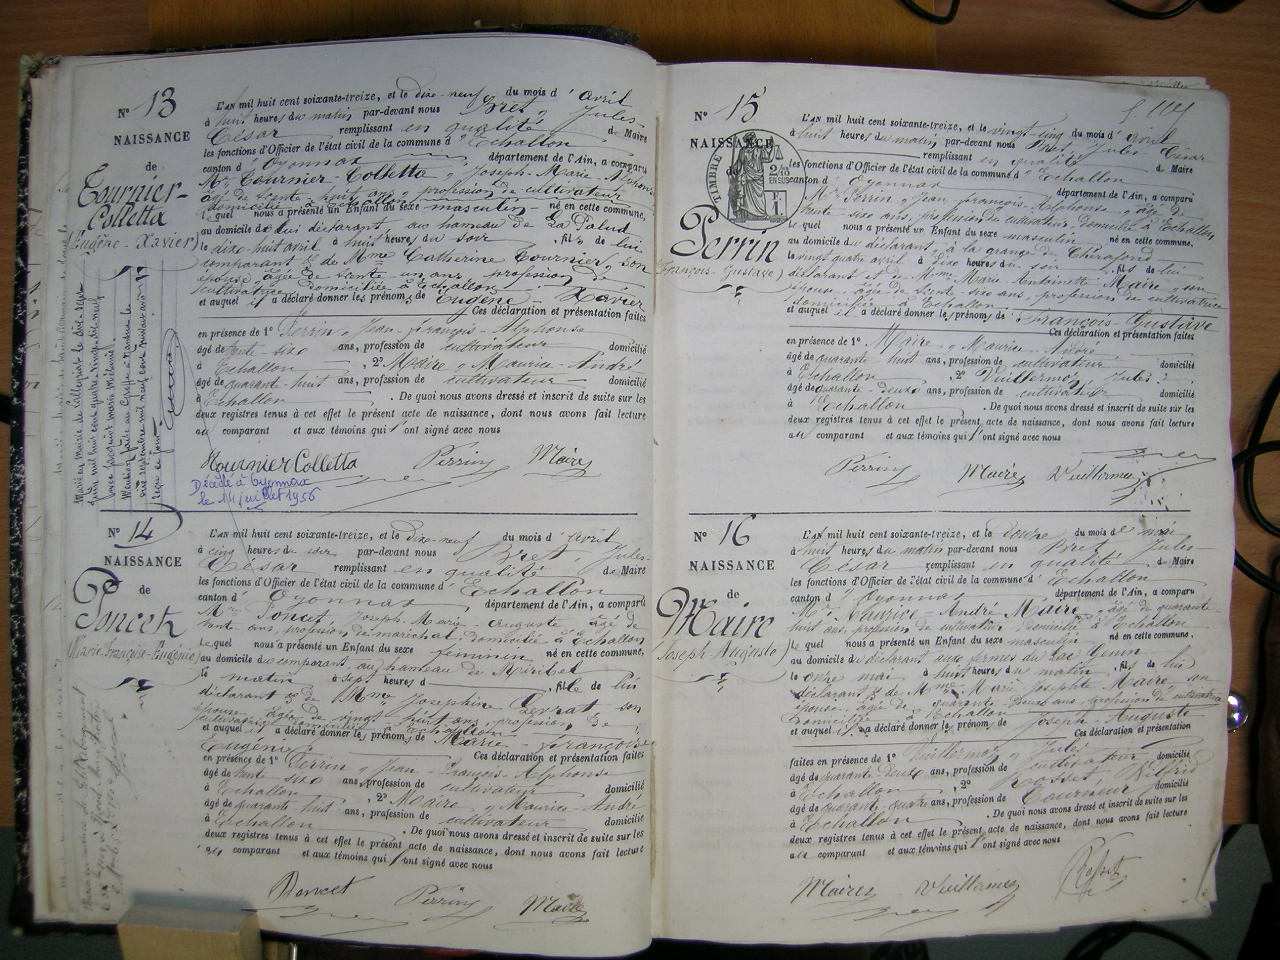 N° 13
NAISSANCE
de
Tournier-
Colletta
(Eugène-Xavier)
L'AN mil huit cent soixante-treize, et le dix-neuf du mois d'avril
à huit heures du matin par-devant nous Bret, Jules-
César remplissant en qualité de Maire
les fonctions d'Officier de l'état civil de la commune d'Echallon
canton d'Oyonnax, département de l'Ain, a comparu
Mr Tournier-Colletta, Joseph-Marie
âgé de trente-huit ans, profession de cultivateur
domicilié à Echallon
lequel nous a présenté un Enfant du sexe masculin né en cette commune,
au domicile de lui déclarant, au hameau de La Palud
le dix-huit avril à huit heures du soir, fils de lui
comparant & de Mme Catherine Tournier, son
épouse, âgée de trente un ans, profession de
cultivatrice domiciliée à Echallon
et auquel il a déclaré donner les prénoms de Eugène-Xavier
Ces déclaration et présentation faites
en présence de 1° Perrin, Jean-François-Alphonse
âgé de trente-six ans, profession de cultivateur domicilié
à Echallon, 2° Maire, Maurice-André
âgé de quarante-huit ans, profession de cultivateur domicilié
à Echallon. De quoi nous avons dressé et inscrit de suite sur les
deux registres tenus à cet effet le présent acte de naissance, dont nous avons fait lecture
au comparant et aux témoins qui l'ont signé avec nous
Tournier Colletta Perrin Maire
Décédé à Oyonnax
le 14 juillet 1956
N° 14
NAISSANCE
de
Poncet
(Marie-Françoise-Eugénie)
L'AN mil huit cent soixante-treize, et le dix-neuf du mois d'avril
à cinq heures du soir par-devant nous Bret, Jules-
César remplissant en qualité de Maire
les fonctions d'Officier de l'état civil de la commune d'Echallon
canton d'Oyonnax, département de l'Ain, a comparu
Mr Poncet, Joseph-Marie-Auguste, âgé de
trente ans, profession de maréchal, domicilié à Echallon
lequel nous a présenté un Enfant du sexe féminin né en cette commune,
au domicile du comparant, au hameau de
le matin à sept heures d, fille de lui
déclarant & de Mme Joséphine son
épouse, âgée de vingt-huit ans, profession de
et auquel il a déclaré donner les prénoms de Marie-Françoise
Eugénie Ces déclaration et présentation faites
en présence de 1° Perrin, Jean-François-Alphonse
âgé de trente-six ans, profession de cultivateur domicilié
à Echallon, 2° Maire, Maurice-André
âgé de quarante-huit ans, profession de cultivateur domicilié
à Echallon. De quoi nous avons dressé et inscrit de suite sur les
deux registres tenus à cet effet le présent acte de naissance, dont nous avons fait lecture
au comparant et aux témoins qui l'ont signé avec nous
Poncet Perrin Maire
N° 15
NAISSANCE
de
TIMBRE
2/10
EN SUS
Perrin
(François-Gustave)
L'AN mil huit cent soixante-treize, et le vingt-cinq du mois d'avril
à huit heures du matin, par-devant nous Bret, Jules César
remplissant en qualité de Maire
les fonctions d'Officier de l'état civil de la commune d'Echallon
canton d'Oyonnax département de l'Ain, a comparu
Mr Perrin, Jean-François-Alphonse, âgé de
trente-six ans, profession de cultivateur, domicilié à Echallon
lequel nous a présenté un Enfant du sexe masculin né en cette commune,
au domicile du déclarant, à la grange de
le vingt-quatre avril à dix heures du soir, fils de lui
déclarant et de Mme Marie-Antoinette Maire, son
épouse, âgée de trente six ans, profession de cultivatrice
domiciliée à Echallon
et auquel il a déclaré donner les prénoms de François-Gustave
Ces déclaration et présentation faites
en présence de 1° Maire, Maurice-André
âgé de quarante-huit ans, profession de cultivateur domicilié
à Echallon, 2° Vuillermoz, Jules
âgé de quarante-deux ans, profession de cultivateur domicilié
à Echallon. De quoi nous avons dressé et inscrit de suite sur les
deux registres tenus à cet effet le présent acte de naissance, dont nous avons fait lecture
au comparant et aux témoins qui l'ont signé avec nous
Perrin Maire Vuillermoz
N° 16
NAISSANCE
de
Maire
(Joseph Auguste)
L'AN mil huit cent soixante-treize, et le douze du mois de mai
à huit heures du matin par-devant nous Bret, Jules-
César remplissant en qualité de Maire
les fonctions d'Officier de l'état civil de la commune d'Echallon
canton d'Oyonnax département de l'Ain, a comparu
Mr Maurice-André Maire, âgé de quarante-
huit ans, profession de cultivateur domicilié à Echallon
lequel nous a présenté un Enfant du sexe masculin né en cette commune,
au domicile du déclarant aux fermes du Lac Genin
le onze mai à huit heures du matin, fils de lui
déclarant & de Mme Marie Josephte Maire, son
épouse, âgée de quarante-deux ans, profession de cultivatrice
domiciliée à Echallon
et auquel il a déclaré donner les prénoms de Joseph-Auguste
Ces déclaration et présentation
faites en présence de 1° Vuillermoz, Jules
âgé de quarante-deux ans, profession de cultivateur domicilié
à Echallon, 2° Rosset, Wilfrid
âgé de quarante-quatre ans, profession de Tourneur domicilié
à Echallon. De quoi nous avons dressé et inscrit de suite sur les
deux registres tenus à cet effet le présent acte de naissance, dont nous avons fait lecture
au comparant et aux témoins qui l'ont signé avec nous
Maire Vuillermoz Rosset